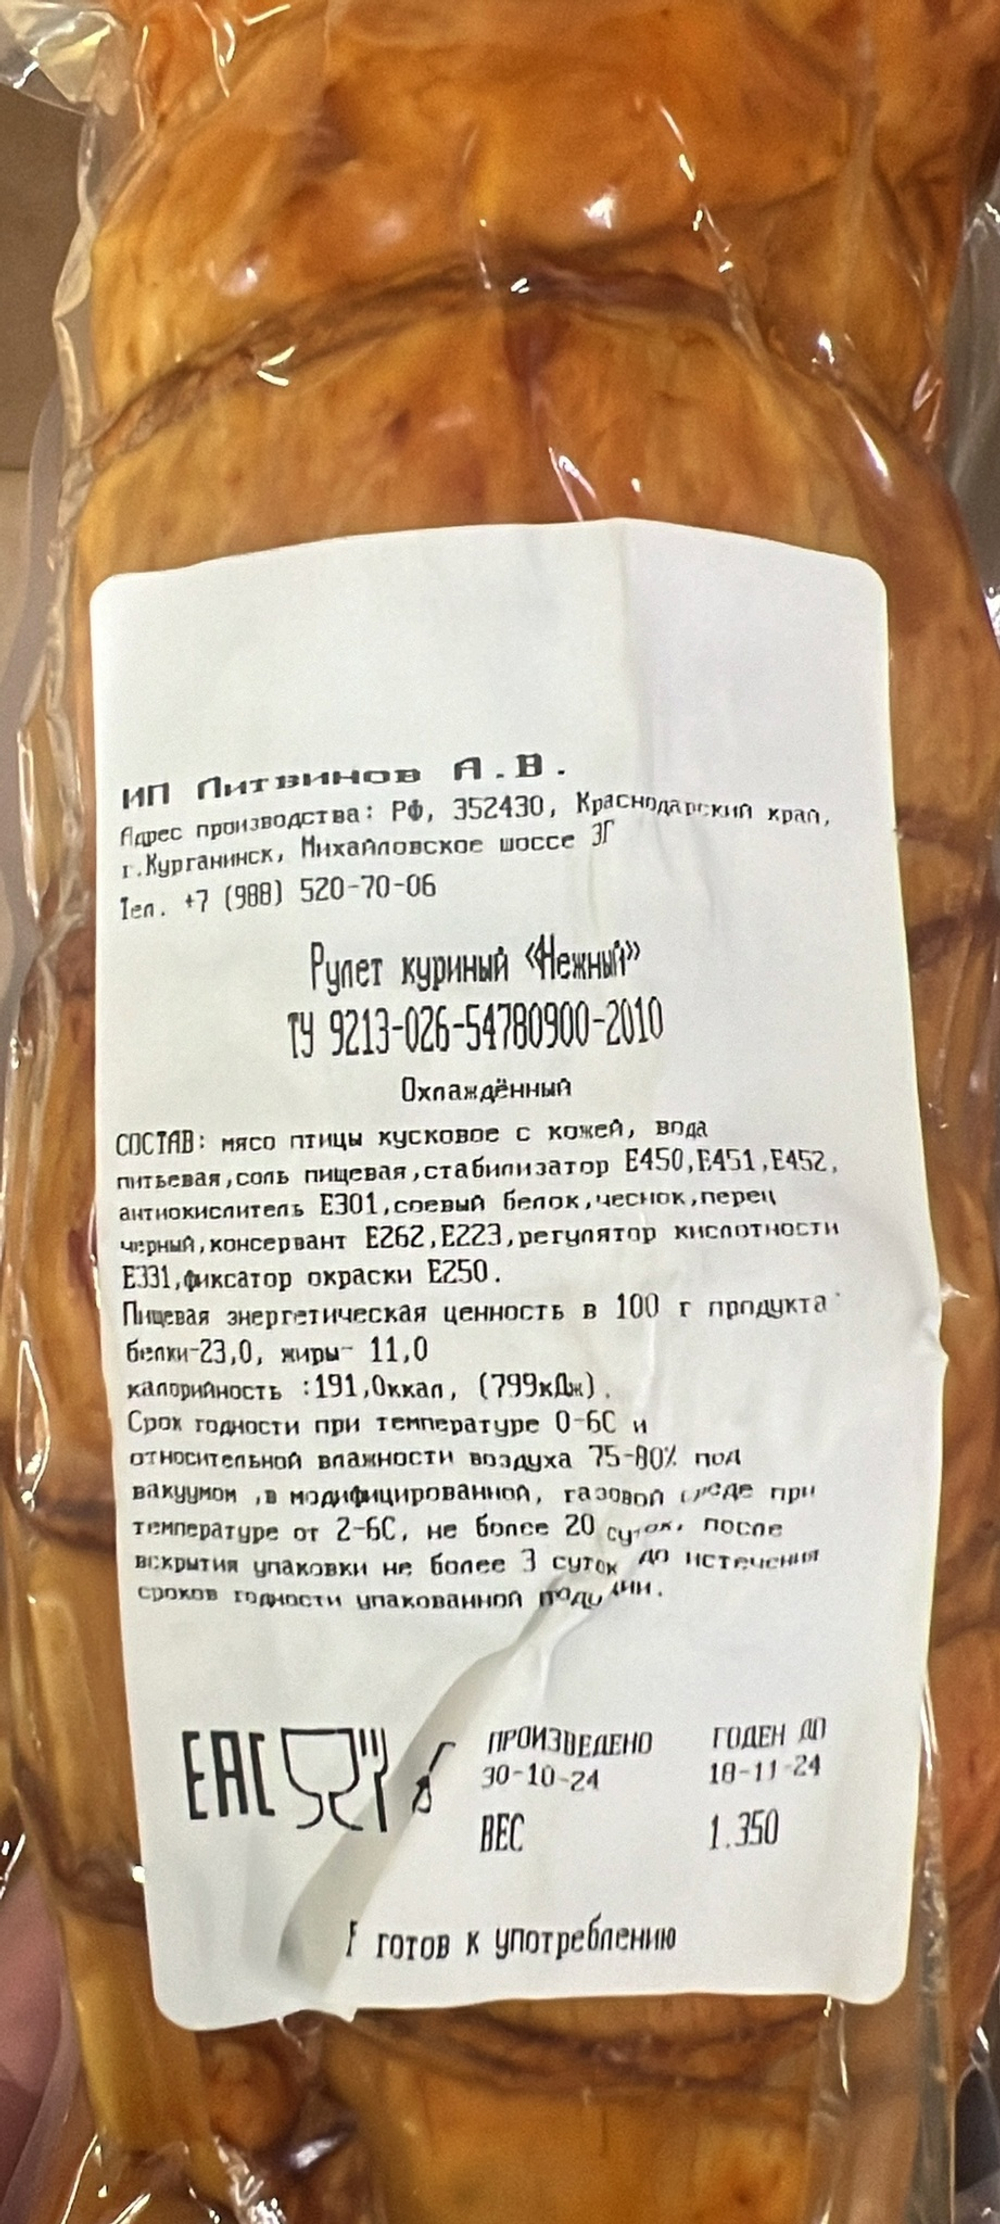 ИП Литвинов А.В.
Адрес производства: РФ, 352430, Краснодарский край,
г.Курганинск, Михайловское шоссе 3Г
Тел. +7 (988) 520-70-06
Рулет куриный «Нежный»
ТУ 9213-026-54780900-2010
Охлаждённый
СОСТАВ: мясо птицы кусковое с кожей, вода
питьевая,соль пищевая,стабилизатор Е450,Е451,Е452,
антиокислитель Е301,соевый белок,чеснок,перец
черный,консервант Е262,Е223,регулятор кислотности
Е331,фиксатор окраски Е250.
Пищевая энергетическая ценность в 100 г продукта
белки-23,0, жиры- 11,0
калорийность :191,0ккал, (799кДж).
Срок годности при температуре 0-6С и
относительной влажности воздуха 75-80% под
вакуумом ,в модифицированной, газовой среде при
температуре от 2-6С, не более 20 суток, после
вскрытия упаковки не более 3 суток до истечения
сроков годности упакованной
ЕАС
ПРОИЗВЕДЕНО ГОДЕН ДО
30-10-24 18-11-24
ВЕС 1.350
готов к употреблению